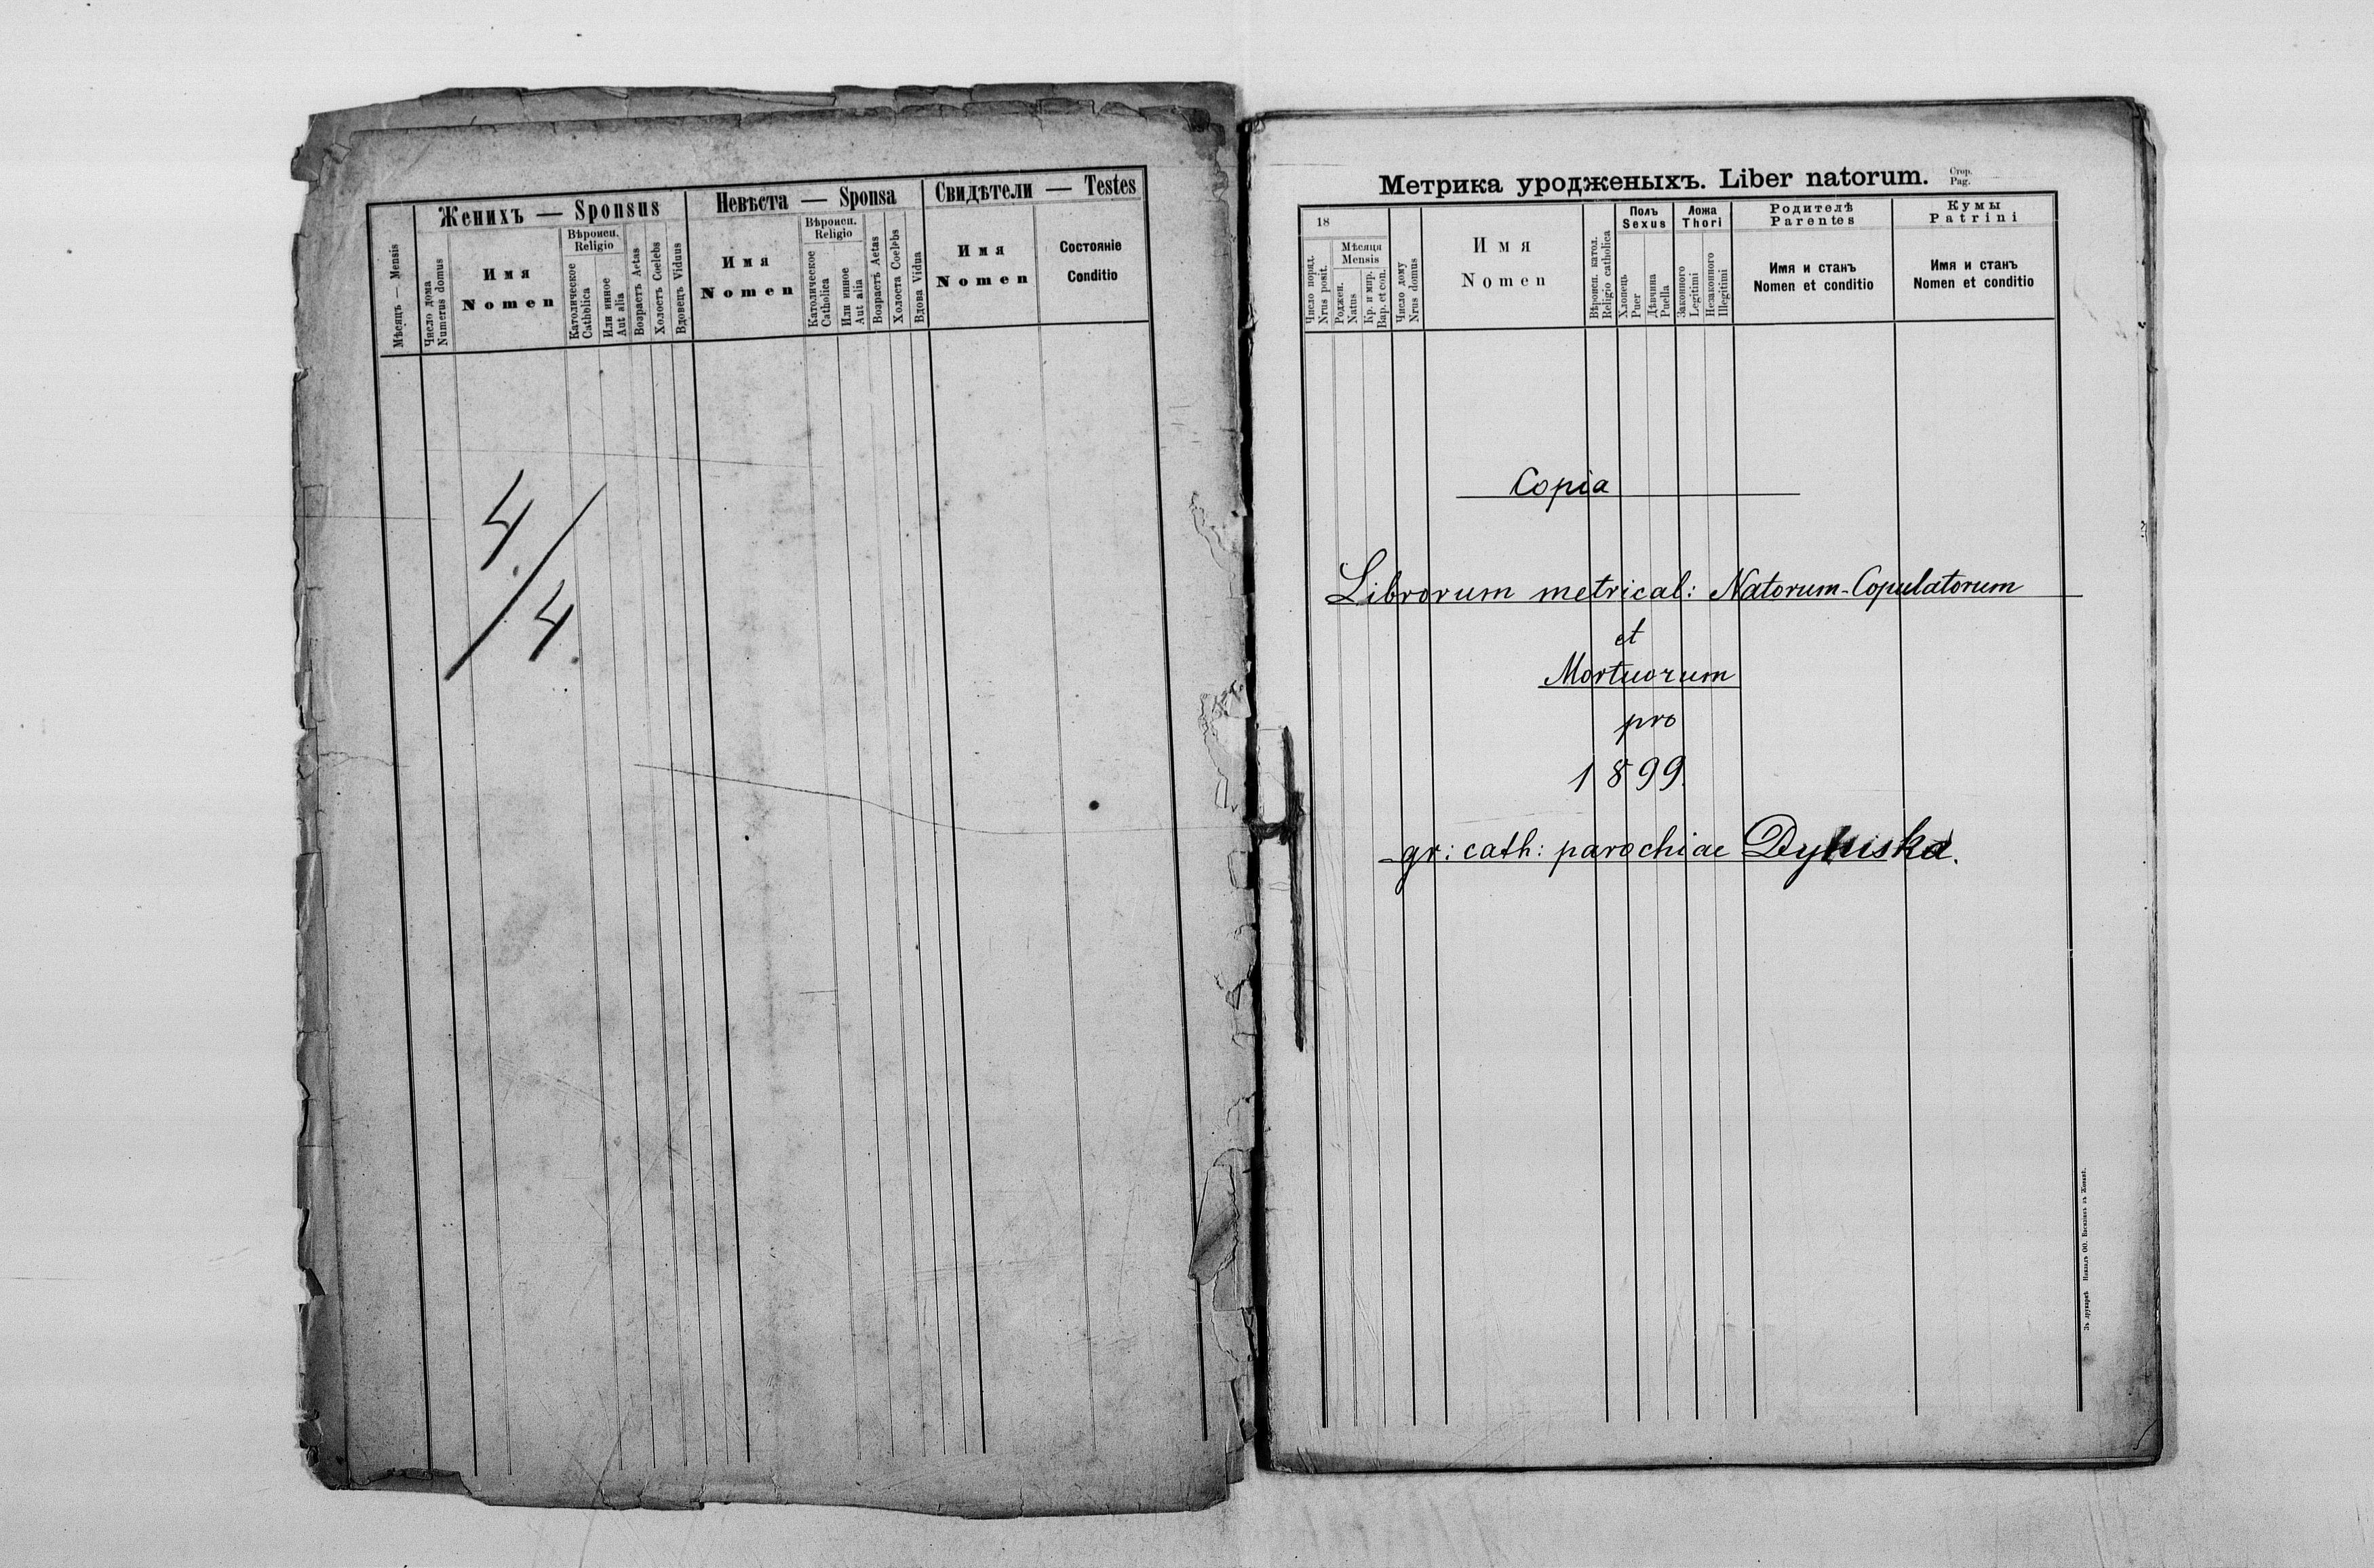 Женихъ — Sponsus
Невѣста — Sponsa
Свидѣтели — Testes
Мѣсяцъ — Mensis
Число дома
Numerus domus
Имя
Nomen
Вѣроисп.
Religio
Католическое
Catholica
Или инное
Aut alia
Возрастъ Aetas
Холостъ Coelebs
Вдовецъ Viduus
Имя
Nomen
Вѣроисп.
Religio
Католическое
Catholica
Или инное
Aut alia
Возрастъ Aetas
Холоста Coelebs
Вдова Vidua
Имя
Nomen
Состояніе
Conditio
4./4.
Метрика уродженыхъ. Liber natorum.
Стор.
Pag.
18
Число поряд.
Nrus posit.
Мѣсяця
Mensis
Рожден.
Natus
Кр. и мир.
Bap. et con.
Число дому
Nrus domus
Имя
Nomen
Вѣроисп. катол.
Religio catholica
Полъ
Sexus
Хлопець
Puer
Дѣвчина
Puella
Ложа
Thori
Законного
Legitimi
Незаконного
Illegitimi
Родителѣ
Parentes
Имя и станъ
Nomen et conditio
Кумы
Patrini
Имя и станъ
Nomen et conditio
Copia
Librorum metrical: Natorum-Copulatorum
et
Mortuorum
pro
1899.
gr: cath: parochiae Dyniska.
Зъ друкарнѣ ОО. Василіянъ въ Жовквѣ.